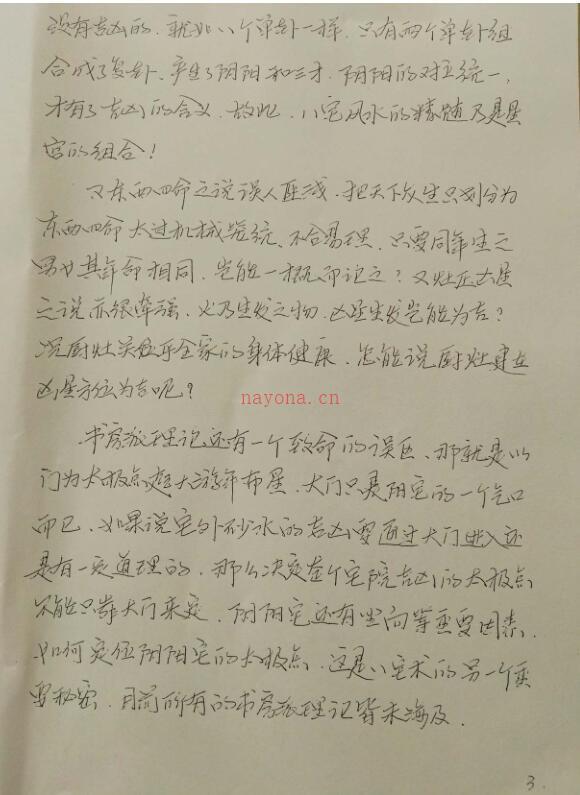 没有吉凶的，就如八个单卦一样，只有两个单卦组
合成了复卦，产生了阴阳和三才，阴阳的对立统一，
才有了吉凶的含义，故此，八宅风水的精髓乃是星
宫的组合！
又东西四命之说误人匪浅，把天下众生只划分为
东西四命太过机械笼统，不合易理，只要同年生之
男女其年命相同，岂能一概而论之？又灶压凶星
之说亦很牵强，火乃生发之物，凶星生发岂能为吉？
况厨灶关乎全家的身体健康，怎能说厨灶建在
凶星方位为吉呢？
nayona.cn
书房派理论还有一个致命的误区，那就是以
门为太极点起大游年布星，大门只是阳宅的一个气口
而已，如果说宅外砂水的吉凶要通过大门进入还
是有一定道理的，那么决定整个宅院吉凶的太极点
不能只靠大门来定，阴阳宅还有坐向等重要因素，
如何定位阴阳宅的太极点，这是八宅术的另一个重
要秘密，目前所有的书房派理论皆未涉及。
3.